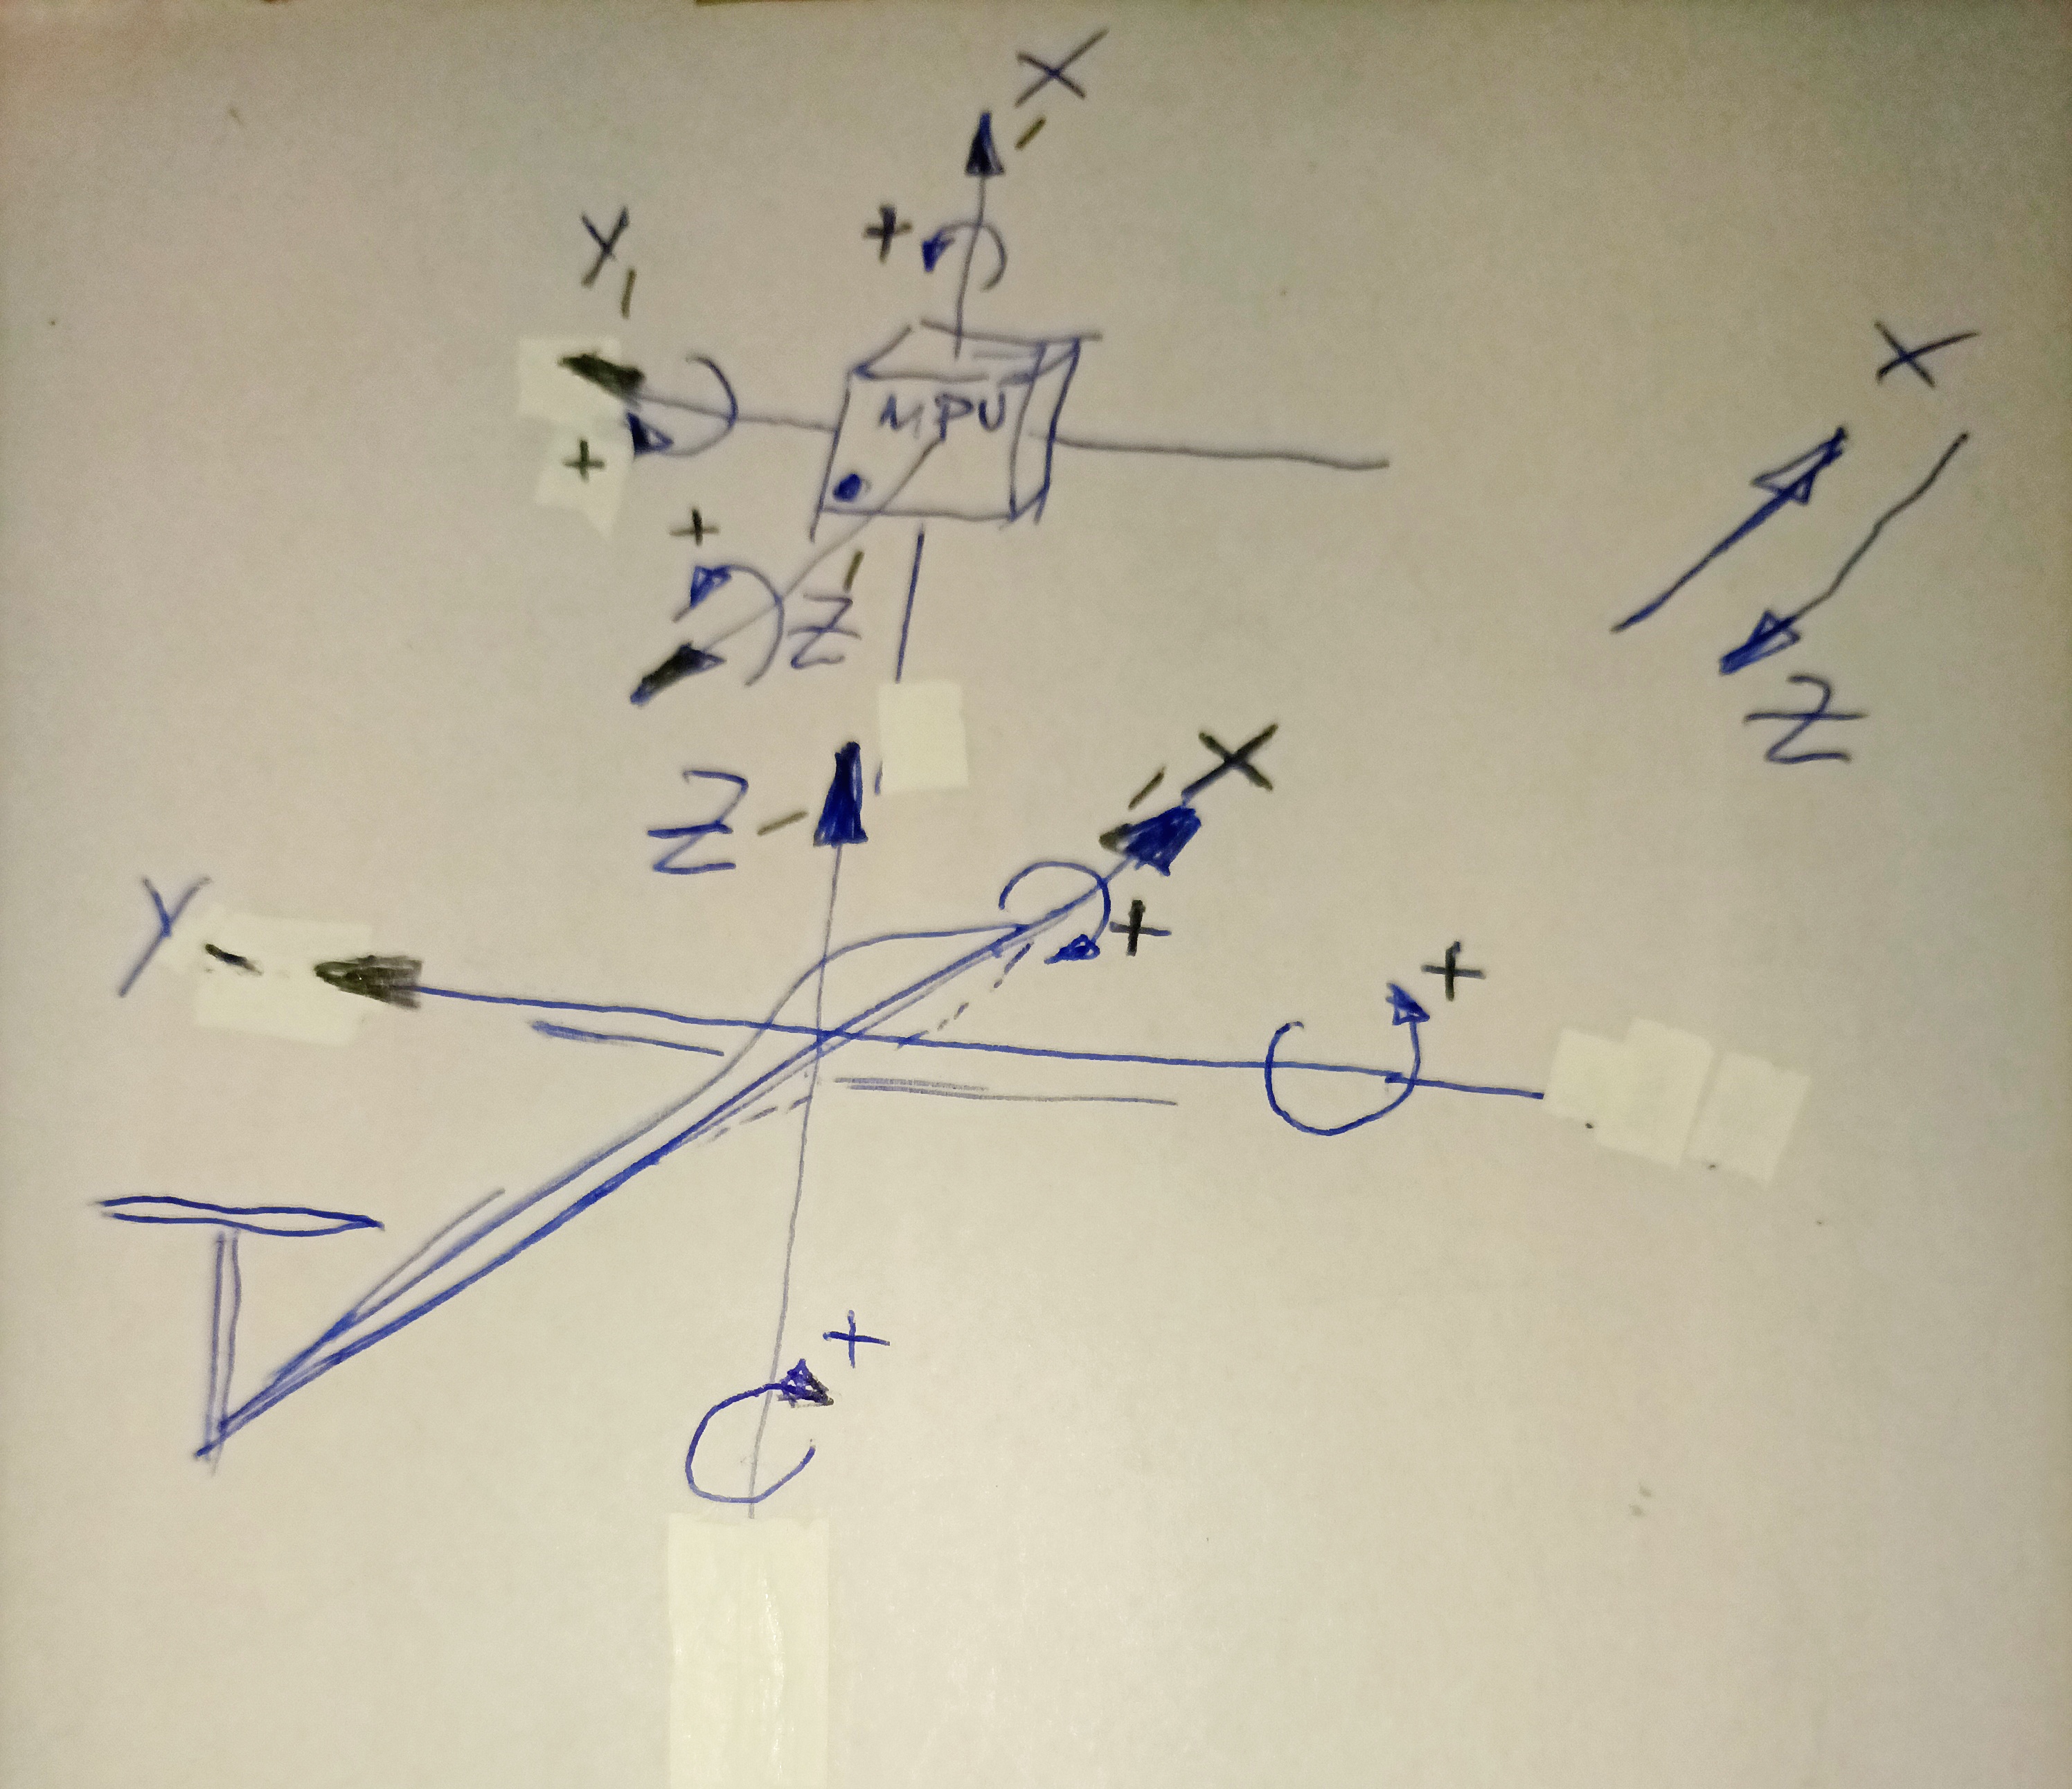 X
-
+
Y
-
+
MPU
+
Z
-
X
Z
Z -
- X
+
Y -
+
+